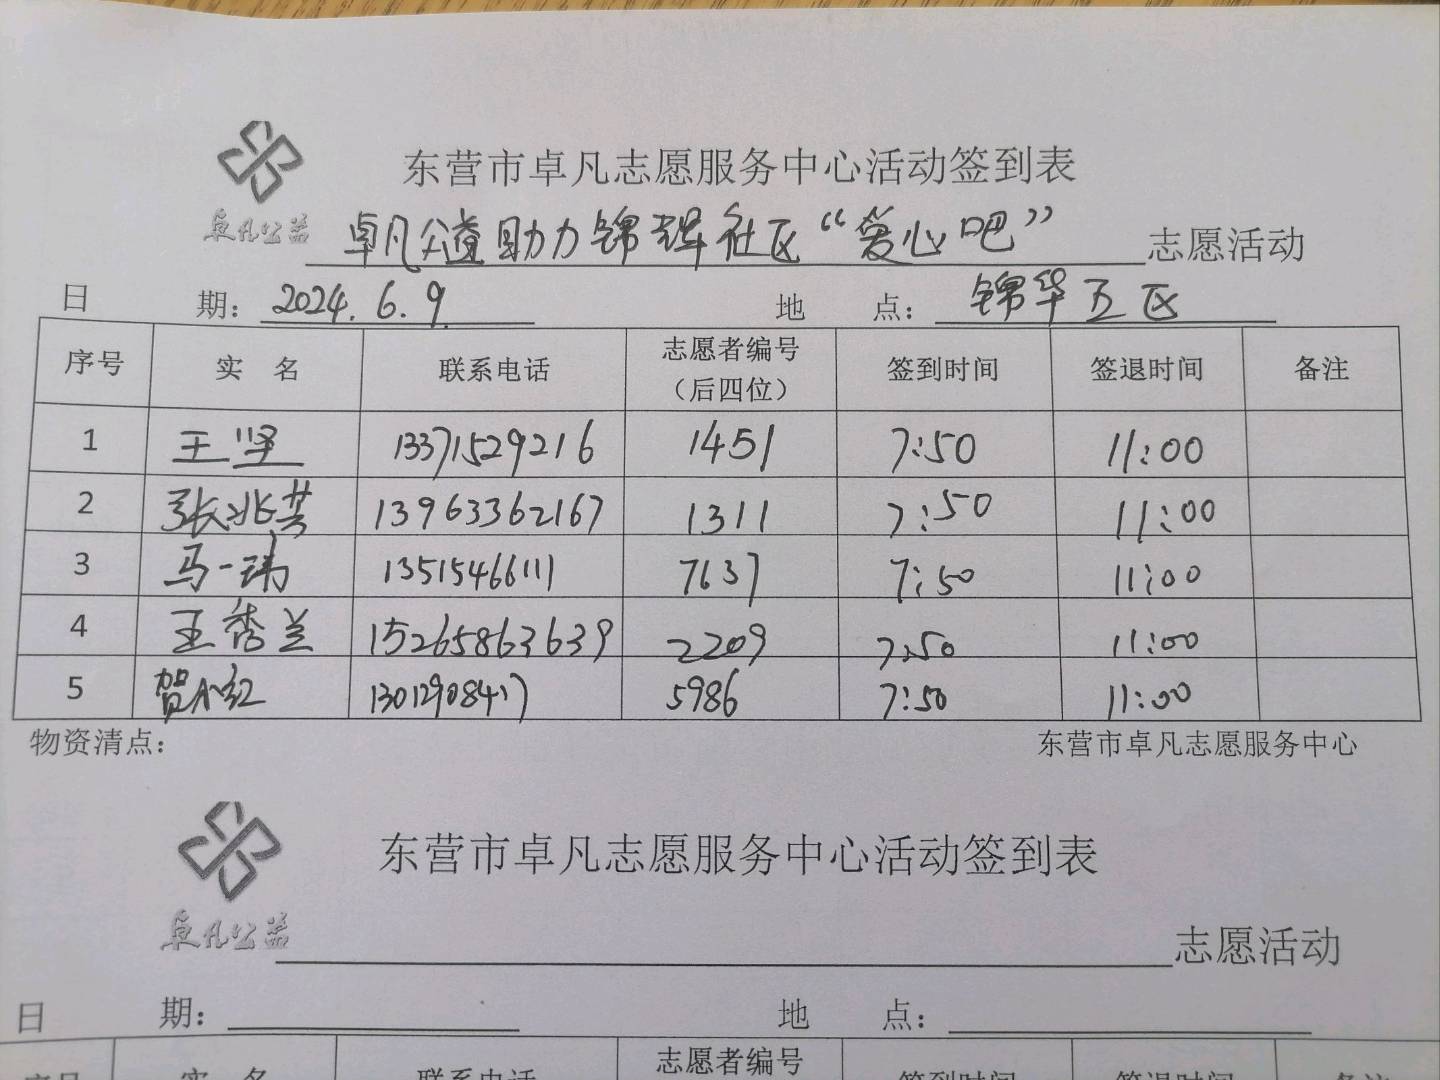 东营市卓凡志愿服务中心活动签到表
卓凡公益 卓凡公益助力锦辉社区“爱心吧” 志愿活动
日 期：2024.6.9 地 点：锦华五区
序号 实 名 联系电话 志愿者编号（后四位） 签到时间 签退时间 备注
1 王坚 13371529216 1451 7:50 11:00
2 张兆芸 13963362167 1311 7:50 11:00
3 马一玮 13515466111 7637 7:50 11:00
4 王秀兰 15265863639 2209 7:50 11:00
5 贺小红 13012908417 5986 7:50 11:00
物资清点： 东营市卓凡志愿服务中心
东营市卓凡志愿服务中心活动签到表
卓凡公益 志愿活动
日 期： 地 点：
序号 实 名 联系电话 志愿者编号 签到时间 签退时间 备注